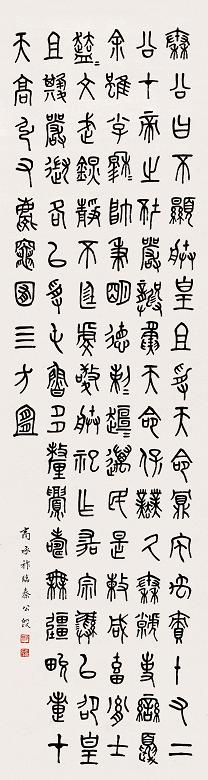 秦公曰不顯朕皇且受天命鼏宅禹責十又二
公才帝之坏嚴龏夤天命保業氒秦虩事蠻夏
余雖小子穆=帥秉明德剌=趄=萬民是敕咸畜胤士
盭=文武鎮靜不廷虔敬朕祀乍宗彝以卲皇
且其嚴御各以受屯魯多釐眉壽無疆畯疐才
天高弘又慶竈囿三方宜
商承祚臨秦公𣪘